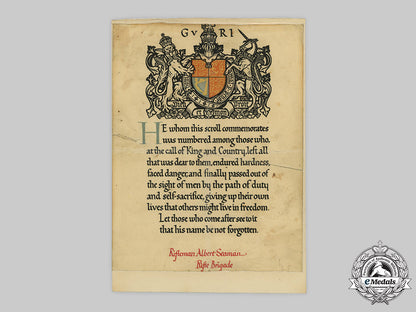 G V R I
HE whom this scroll commemorates
was numbered among those who,
at the call of King and Country, left all
that was dear to them, endured hardness,
faced danger, and finally passed out of
the sight of men by the path of duty
and self-sacrifice, giving up their own
lives that others might live in freedom.
Let those who come after see to it
that his name be not forgotten.
Rifleman Albert Seaman
Rifle Brigade
eMedals